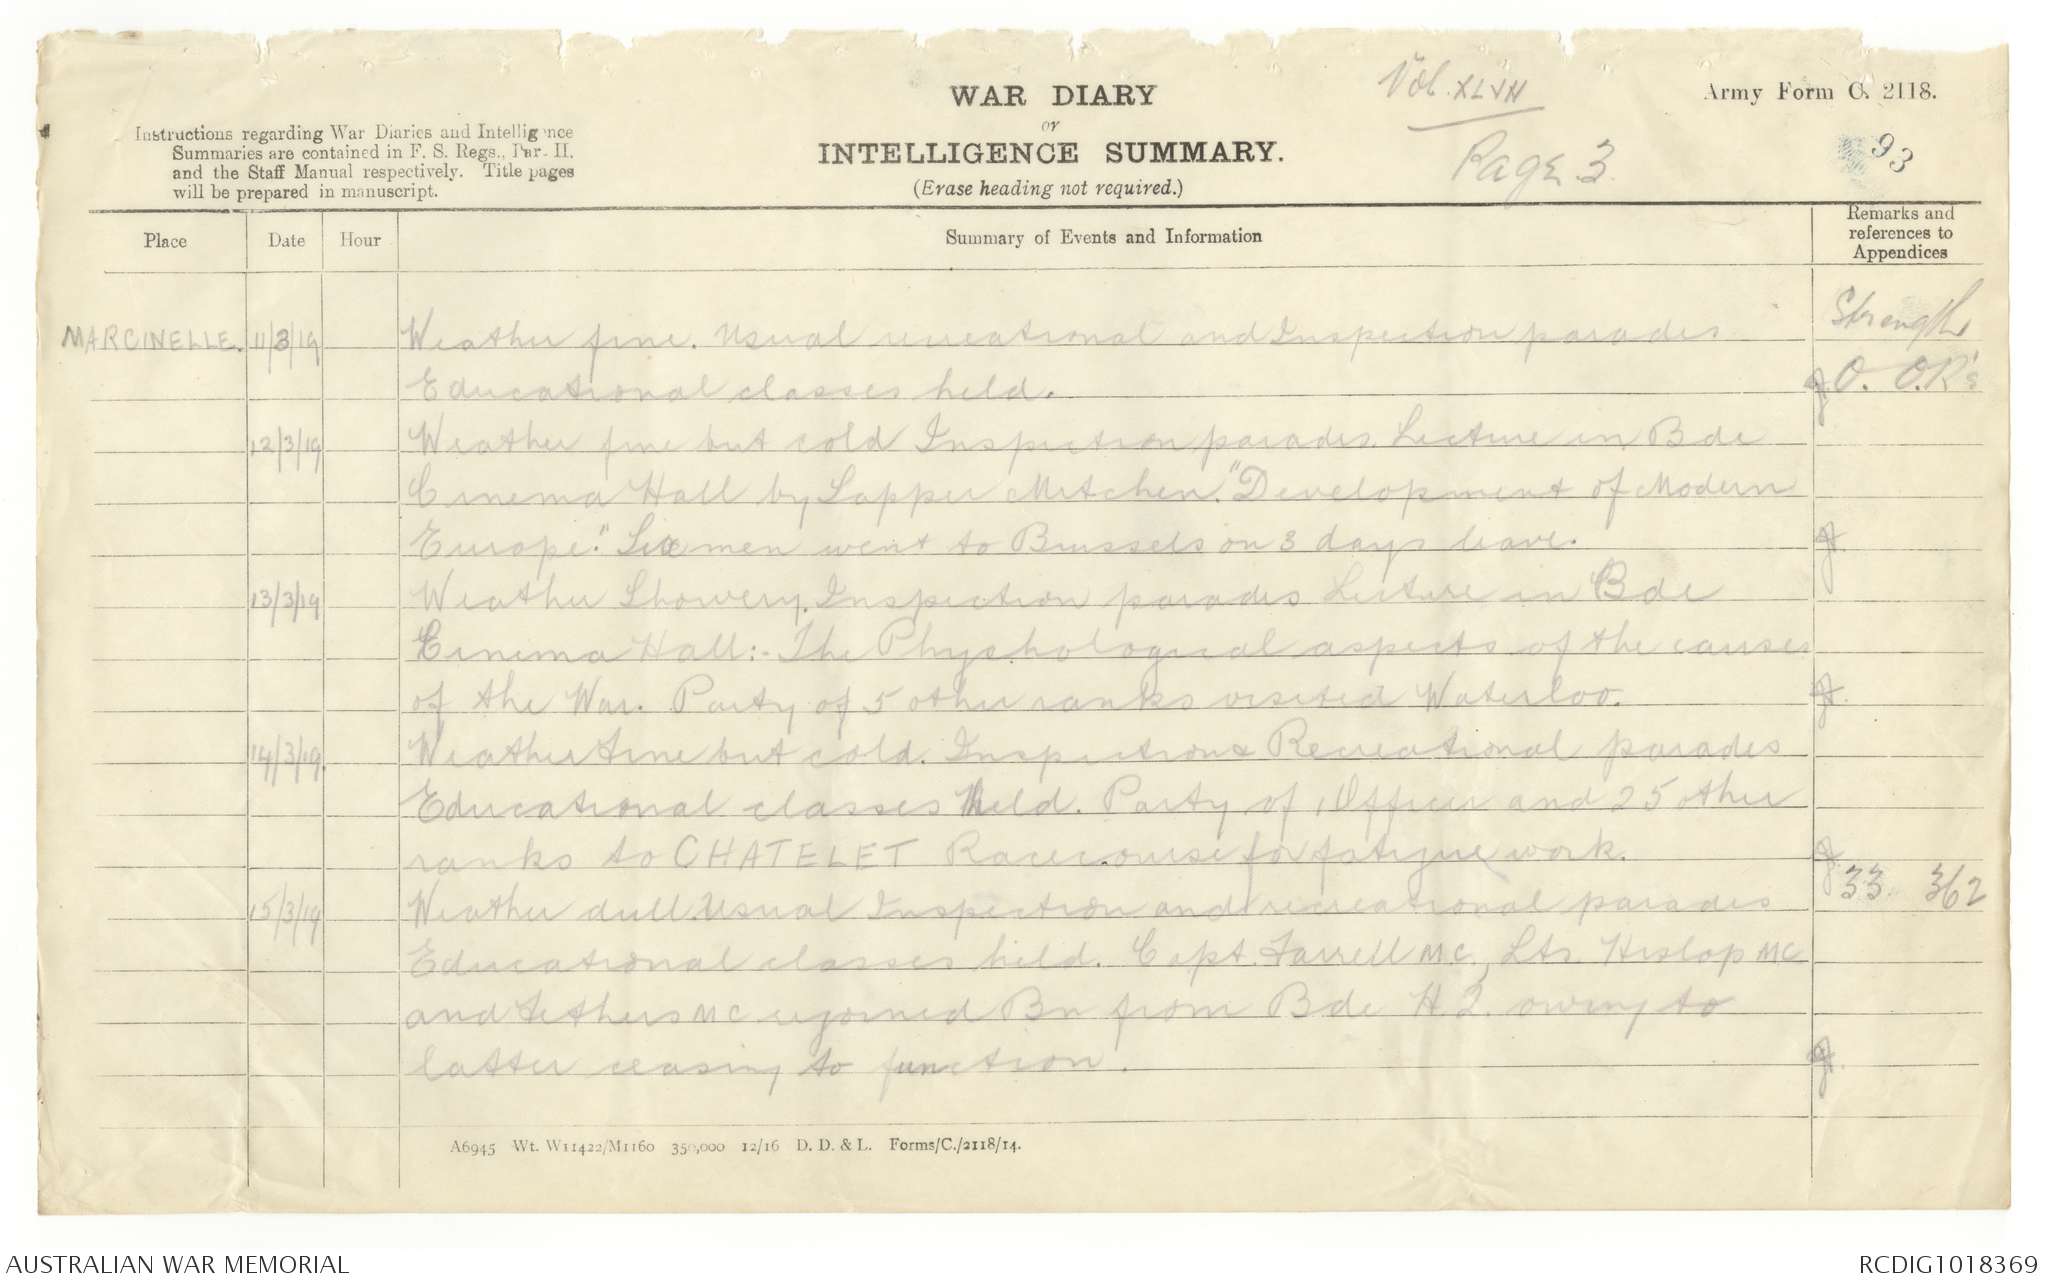 WAR DIARY
or
INTELLIGENCE SUMMARY.
(Erase heading not required.)
Instructions regarding War Diaries and Intelligence
Summaries are contained in F. S. Regs., Par. II.
and the Staff Manual respectively. Title pages
will be prepared in manuscript.
Vol. XLVII
Page 3.
Army Form C. 2118.
93
Place Date Hour Summary of Events and Information Remarks and references to Appendices
Strength
MARCINELLE. 11/3/19 Weather fine. Usual recreational and Inspection parades
Educational classes held. O. O.R's
12/3/19 Weather fine but cold Inspection parades. Lecture in Bde
Cinema Hall by Sapper Mitchen. "Development of Modern
Europe." Six men went to Brussels on 3 days leave.
13/3/19 Weather Showery. Inspection parades Lecture in Bde
Cinema Hall:- The Physhological aspects of the causes
of the War. Party of 5 other ranks visited Waterloo.
14/3/19. Weather fine but cold. Inspection & Recreational parades
Educational classes held. Party of 1 Officer and 25 other
ranks to CHATELET Racecourse for fatigue work.
15/3/19 Weather dull. Usual Inspection and recreational parades 33 362
Educational classes held. Capt. Farrell MC., Lts. Hislop MC
and Tethers MC rejoined Bn from Bde H.Q. owing to
latter ceasing to function.
A6945 Wt. W11422/M1160 350,000 12/16 D. D. & L. Forms/C./2118/14.
AUSTRALIAN WAR MEMORIAL
RCDIG1018369